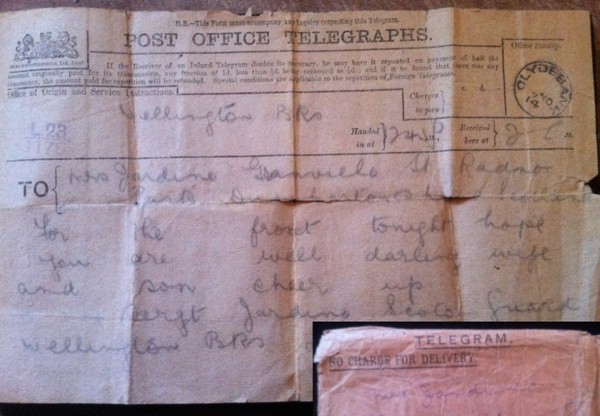 N.B.—This Form must accompany any Inquiry respecting this Telegram.
POST OFFICE TELEGRAPHS.
If the Receiver of an Inland Telegram doubts its accuracy, he may have it repeated on payment of half the
amount originally paid for its transmission, any fraction of 1d. less than ½d. being reckoned as ½d.; and if it be found that there was any
inaccuracy, the amount paid for repetition will be refunded. Special conditions are applicable to the repetition of Foreign Telegrams.
Office Stamp.
CLYDEBANK
NO
14
Office of Origin and Service Instructions.
Charges
to pay
s. d.
Wellington Bks
Handed
in at
Received
here at
TO
Mrs Jardine St Radnor
Park Leaving
for the front tonight hope
you are well darling wife
and son cheer up
Sergt Jardine Scots Guard
Wellington Bks
TELEGRAM.
NO CHARGE FOR DELIVERY.
Mrs Jardine